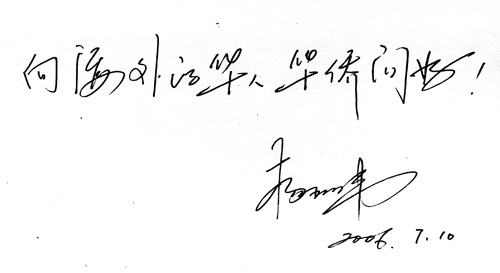 向海外的华人华侨问好!
2006. 7.10